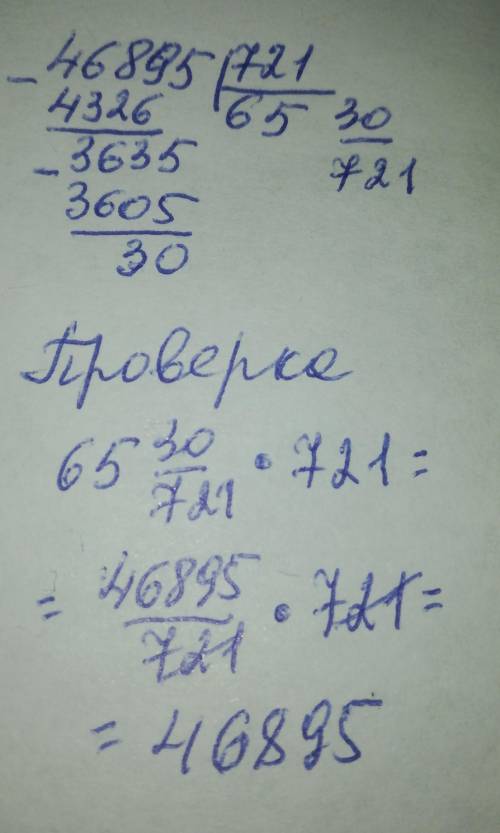 - 46895 | 721
4326 65 30/721
- 3635
3605
30
Проверка
65 30/721 · 721 =
= 46895/721 · 721 =
= 46895